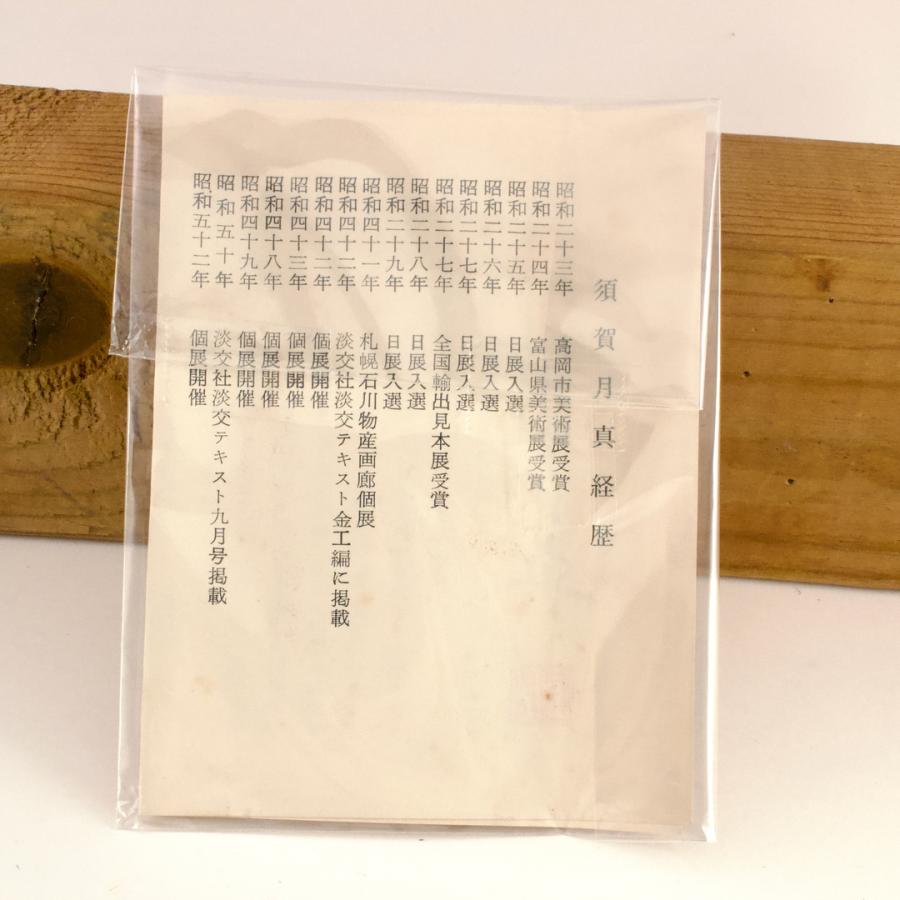 須賀月真経歴
昭和二十三年 高岡市美術展受賞
昭和二十四年 富山県美術展受賞
昭和二十五年 日展入選
昭和二十六年 日展入選
昭和二十七年 日展入選
昭和二十七年 全国輸出見本展受賞
昭和二十八年 日展入選
昭和二十九年 日展入選
昭和四十一年 札幌石川物産画廊個展
昭和四十二年 淡交社淡交テキスト金工編に掲載
昭和四十二年 個展開催
昭和四十三年 個展開催
昭和四十八年 個展開催
昭和四十九年 個展開催
昭和五十年 淡交社淡交テキスト九月号掲載
昭和五十二年 個展開催